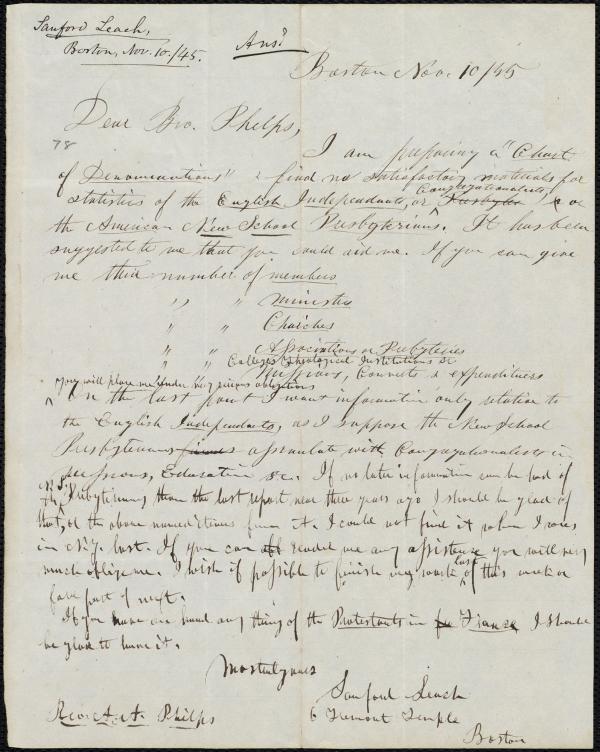 Sanford Leach,
Boston, Nov. 10./45.
Ansd
Boston Nov. 10/45
Dear Bro. Phelps,
78
I am preparing a "Chart
of Denominations" & find no satisfactory materials for
Congregationalists,
statistics of the English Independants, or Presbyter & or
the American New School Presbyterians. It has been
suggested to me that you could aid me. If you can give
me their number of members
" " Ministers
" " Churches
" " Associations or Presbyteries
Colleges Theological Institutions &c
" " Missions, Converts & expenditures
you will place me under very serious obligations
On the last point I want information only relative to
the English Independants, as I suppose the New School
Presbyterians assimulate with Congregationalists in
missions, Education &c. If no later information can be had of
N.S.
the Presbyterians than the last report near three years ago I should be glad of
that, or the above named items from it. I could not find it when I was
in N.Y. last. If you can render me any assistance you will very
much oblige me. I wish if possible to finish my work last of this week or
fore part of next.
If you have on hand any thing of the Protestants in France I should
be glad to have it.
Most truly yours
Sanford Leach
6 Tremont Temple
Boston
Rev. A. A. Phelps